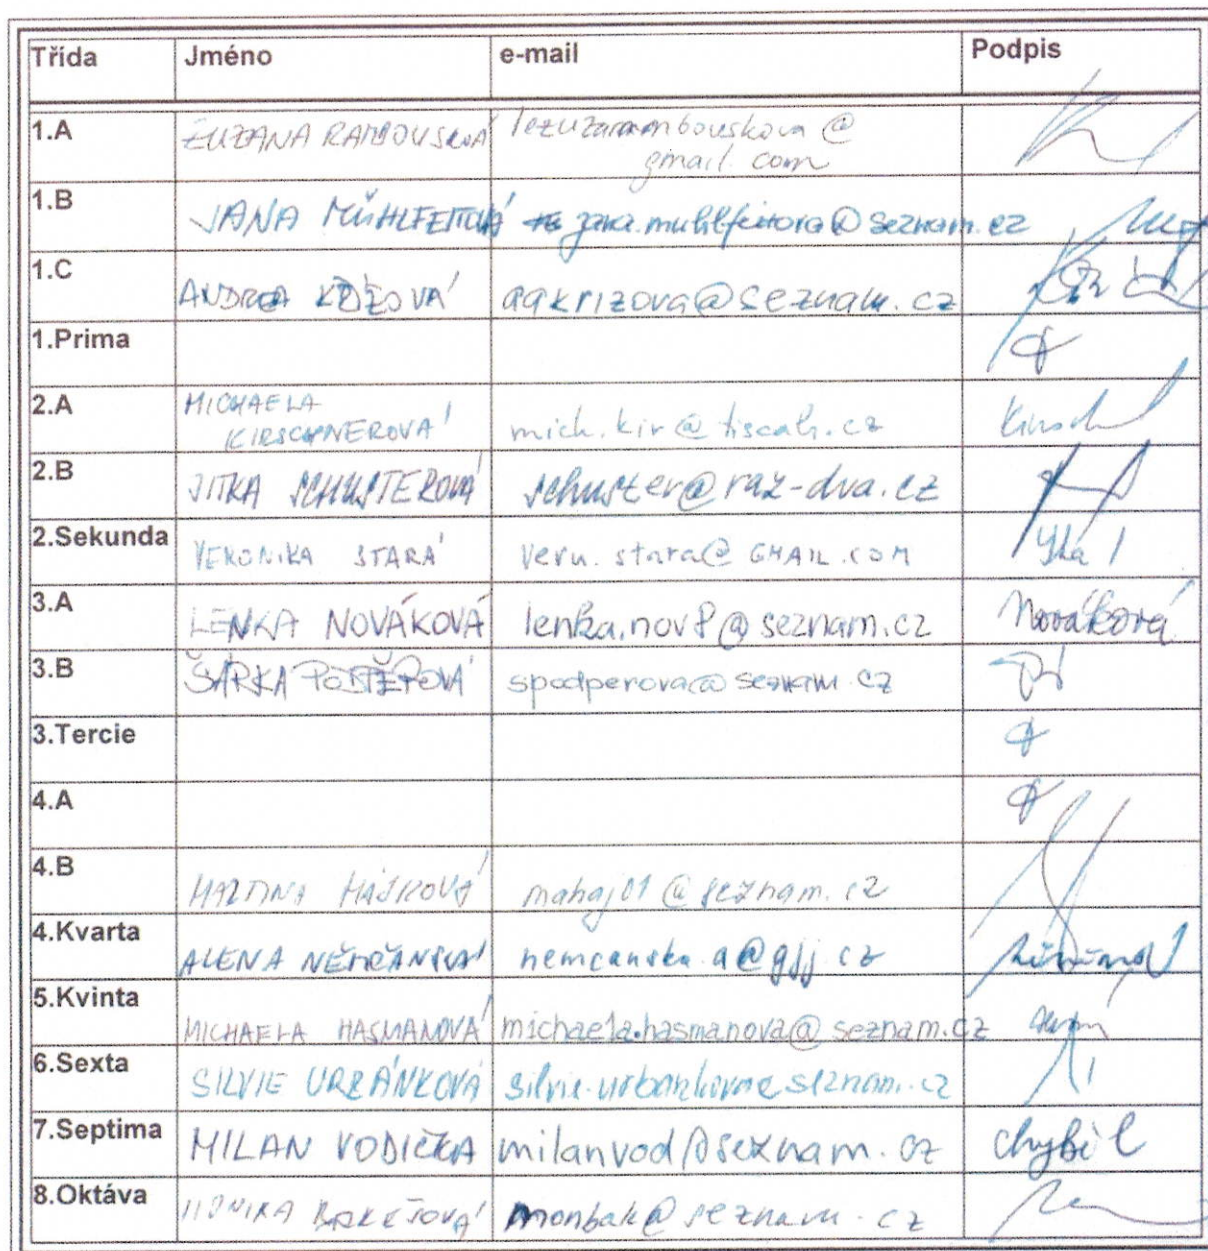 Třída Jméno e-mail Podpis
1.A ZUZANA RAMBOUSKOVÁ
gmail.com
1.B JANA MÜHLFEITOVÁ @seznam.ez
1.C ANDREA KŘÍŽOVÁ aakrizova@seznam.cz
1.Prima
2.A MICHAELA
KIRSCHNEROVÁ mich.kir@tiscali.cz Kirsch
2.B JITKA SCHUSTEROVÁ schuster@raz-dva.cz
2.Sekunda VERONIKA STARÁ veru.stara@GMAIL.COM
3.A LENKA NOVÁKOVÁ lenka.nov8@seznam.cz Nováková
3.B ŠÁRKA spodperova@seznam.cz
3.Tercie
4.A
4.B MARTINA HÁJKOVÁ mahaj01@seznam.cz
4.Kvarta ALENA NĚMČANSKÁ nemcanska.a@gjj.cz
5.Kvinta MICHAELA HASMANOVÁ michaela.hasmanova@seznam.cz
6.Sexta SILVIE URBÁNKOVÁ silvie.urbankova@seznam.cz
7.Septima MILAN VODIČKA milanvod@seznam.cz chyběl
8.Oktáva MONIKA BAKEŠOVÁ monbak@seznam.cz